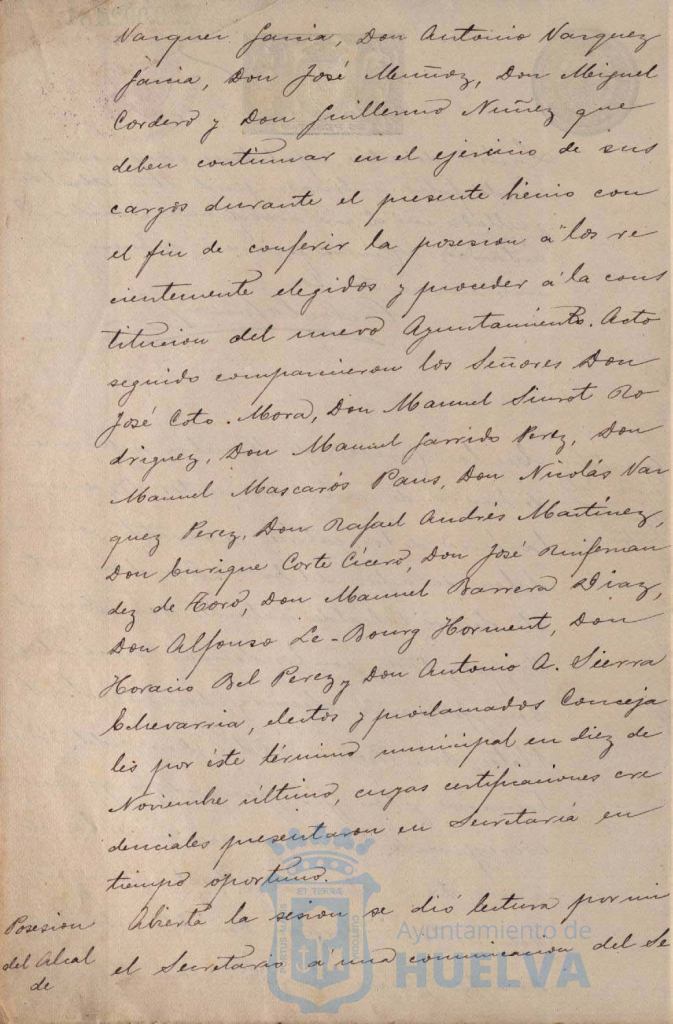 Vazquez Garcia, Don Antonio Vazquez
Garcia, Don José Muñoz, Don Miguel
Cordero y Don Guillermo Nuñez que
deben continuar en el ejercicio de sus
cargos durante el presente bienio con
el fin de conferir la posesion á los re
cientemente elegidos y proceder á la cons
titucion del nuevo Ayuntamiento. Acto
seguido comparecieron los Señores Don
José Coto Mora, Don Manuel Siurot Ro
driguez, Don Manuel Garrido Perez, Don
Manuel Mascarós Pans, Don Nicolás Vaz
quez Perez, Don Rafael Andrés Martínez,
Don Enrique Corte Cícero, Don José Ruifernan
dez de Toro, Don Manuel Barrera Diaz,
Don Alfonso Le-Bourg Horment, Don
Horacio Bel Perez y Don Antonio A. Sierra
Echevarria, electos y proclamados Conceja
les por éste término municipal en diez de
Noviembre último, cuyas certificaciones cre
denciales presentaron en Secretaría en
tiempo oportuno.
Posesion
del Alcal
de
Abierta la sesion se dió lectura por mi
el Secretario á una comunicacion del Se
Ayuntamiento de
HUELVA